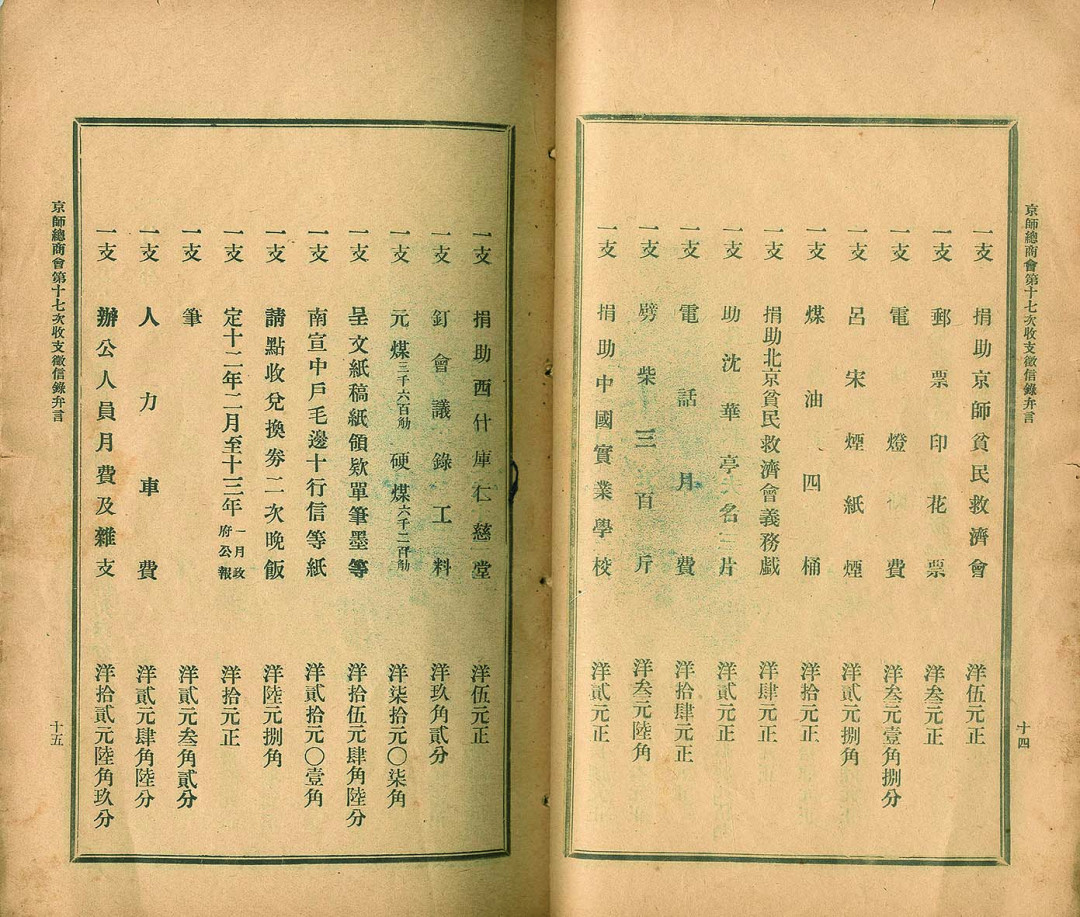 京師總商會第十七次收支徵信錄弁言
十四
一支 捐助京師貧民救濟會 洋伍元正
一支 郵票印花票 洋叁元正
一支 電燈費 洋叁元壹角捌分
一支 呂宋煙紙煙 洋貳元捌角
一支 煤油四桶 洋拾元正
一支 捐助北京貧民救濟會義務戲 洋肆元正
一支 助沈華亭名片 洋貳元正
一支 電話月費 洋拾肆元正
一支 劈柴三百斤 洋叁元陸角
一支 捐助中國實業學校 洋貳元正
一支 捐助西什庫仁慈堂 洋伍元正
一支 釘會議錄工料 洋玖角貳分
一支 元煤三千六百觔硬煤六千二百觔 洋柒拾元〇柒角
一支 呈文紙稿紙領欵單筆墨等 洋拾伍元肆角陸分
一支 南宣中戶毛邊十行信等紙 洋貳拾元〇壹角
一支 請點收兌換券二次晚飯 洋陸元捌角
一支 定十二年二月至十三年一月政府公報 洋拾元正
一支 筆 洋貳元叁角貳分
一支 人力車費 洋貳元肆角陸分
一支 辦公人員月費及雜支 洋拾貳元陸角玖分
京師總商會第十七次收支徵信錄弁言
十五